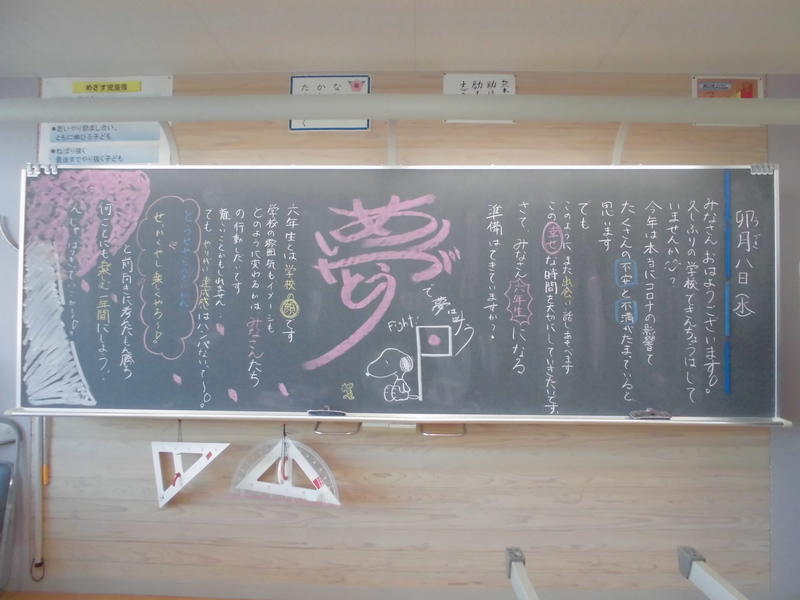 めざす児童像
●思いやり励まし合い、
ともに伸びる子ども
●ねばり強く
最後までやり抜く子ども
卯月八日(水)
うづき
みなさん おはようございます♪。
久しぶりの学校できんちょうはして
いませんか?
今年は本当にコロナの影響で
たくさんの不安と不満がたまっていると
思います
でも
このように また出会い 話しあえます
この幸せな時間を大切にしていきたいです。
さて、みなさん六年生になる
準備はできていますか?
夢
めざ
で夢はサク
Fight!
六年生とは 学校の顔です
学校の雰囲気もイメージも
どのように変わるかは みなさんたち
の行動しだいです
難しいことかもしれません
でも やりがい 達成感はハンパないで〜す。
せっかくやし楽しくやろ〜♪
と前向きに考えたもん勝ち
何ごとにも楽む一年間にしよう。